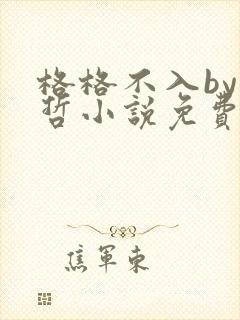 格格不入by
哲小説免費
焦軍東